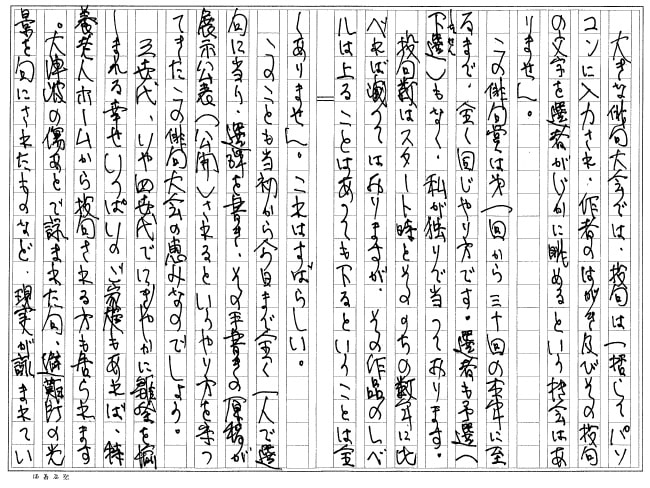 大きな俳句大会では、投句は一括してパソ
コンに入力され、作者のはがき及びその投句
の文字を選者がじかに眺めるという機会はあ
りません。
この俳句賞は第一回から三十回の本年に至
るまで、全く同じやり方です。選者も予選（
下選）もなく、私が独りで当っております。
投句数はスタート時とそののちの数年に比
べれば減ってはおりますが、その作品のレベ
ルは上ることはあっても下るということは全
くありません。これはすばらしい。
このことも当初から今日まで全く一人で選
句に当り、選評を書き、その手書きの原稿が
展示公表（公開）されるというやり方を貫っ
てきたこの俳句大会の恵みなのでしょう。
三世代、いや四世代でにぎやかに 全を愉
しまれる幸せいっぱいのご家族もあれば、特
養老人ホームから投句される方も居られます
。大津波の傷あとで詠まれた句、避難所の光
景を句にされたものなど、現実が詠まれてい